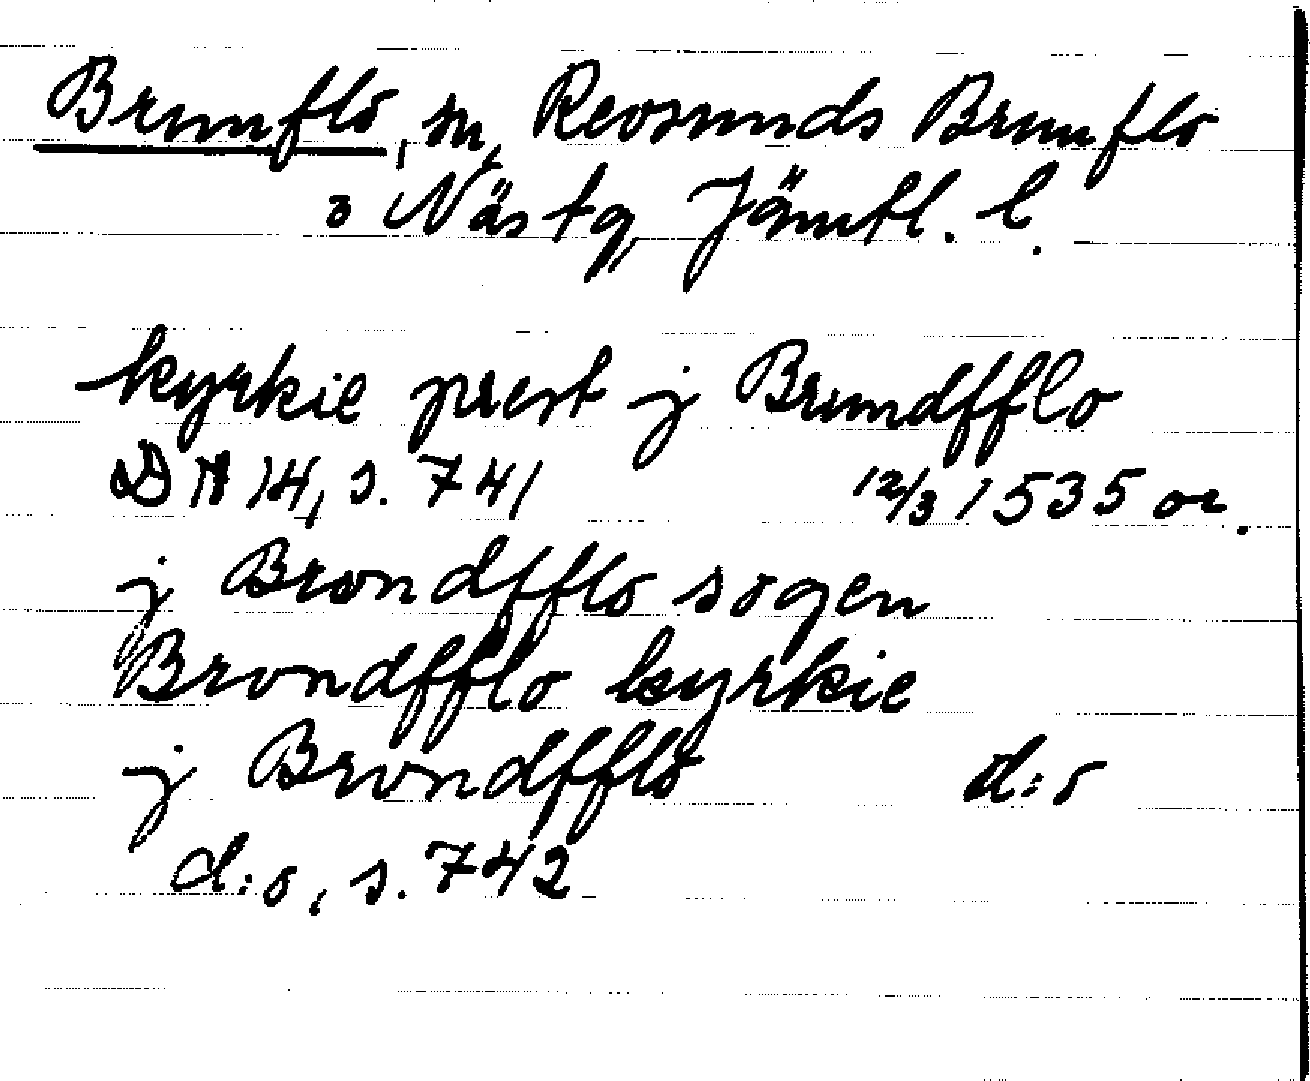 Brunflo, sn, Revsunds Brunflo
o Näs tg, Jämtl. l.
kyrkie prest j Brundfflo
DN 14, s. 741 12/3 1535 or.
j Brondfflo sogen
Brondfflo kyrkie
j Brondfflo d:o
d:o, s. 742